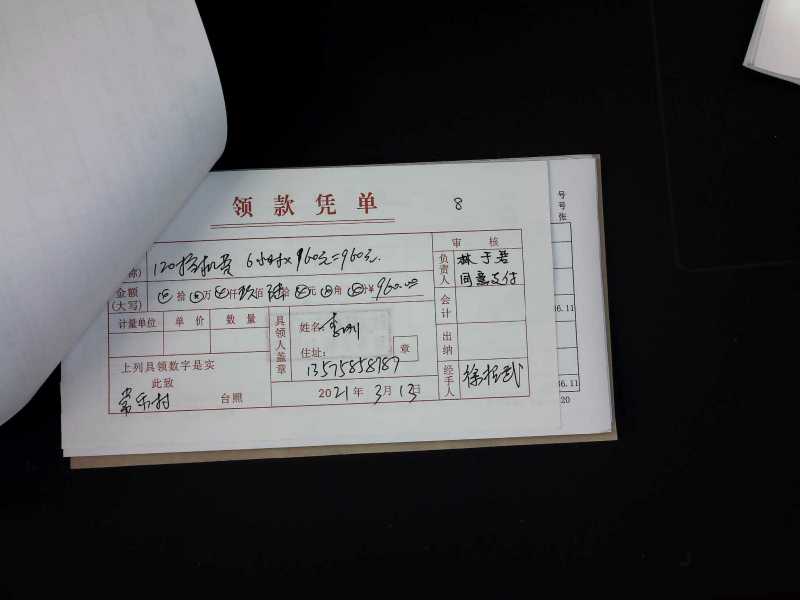 领款凭单
8
称)
120挖机费 6小时×960元=960元.
审 核
负责人
林于若
同意支付
金额
(大写)
⊗拾⊗万⊗仟玖佰陆拾⊗元⊗角⊗分¥960.00
计量单位 单 价 数 量
会计
出纳
具领人盖章
姓名:李刚
住址:
13575858787
章
上列具领数字是实
此致
常乐村 台照
2021年3月13日
经手人
号
号
张
36.11
36.11
20